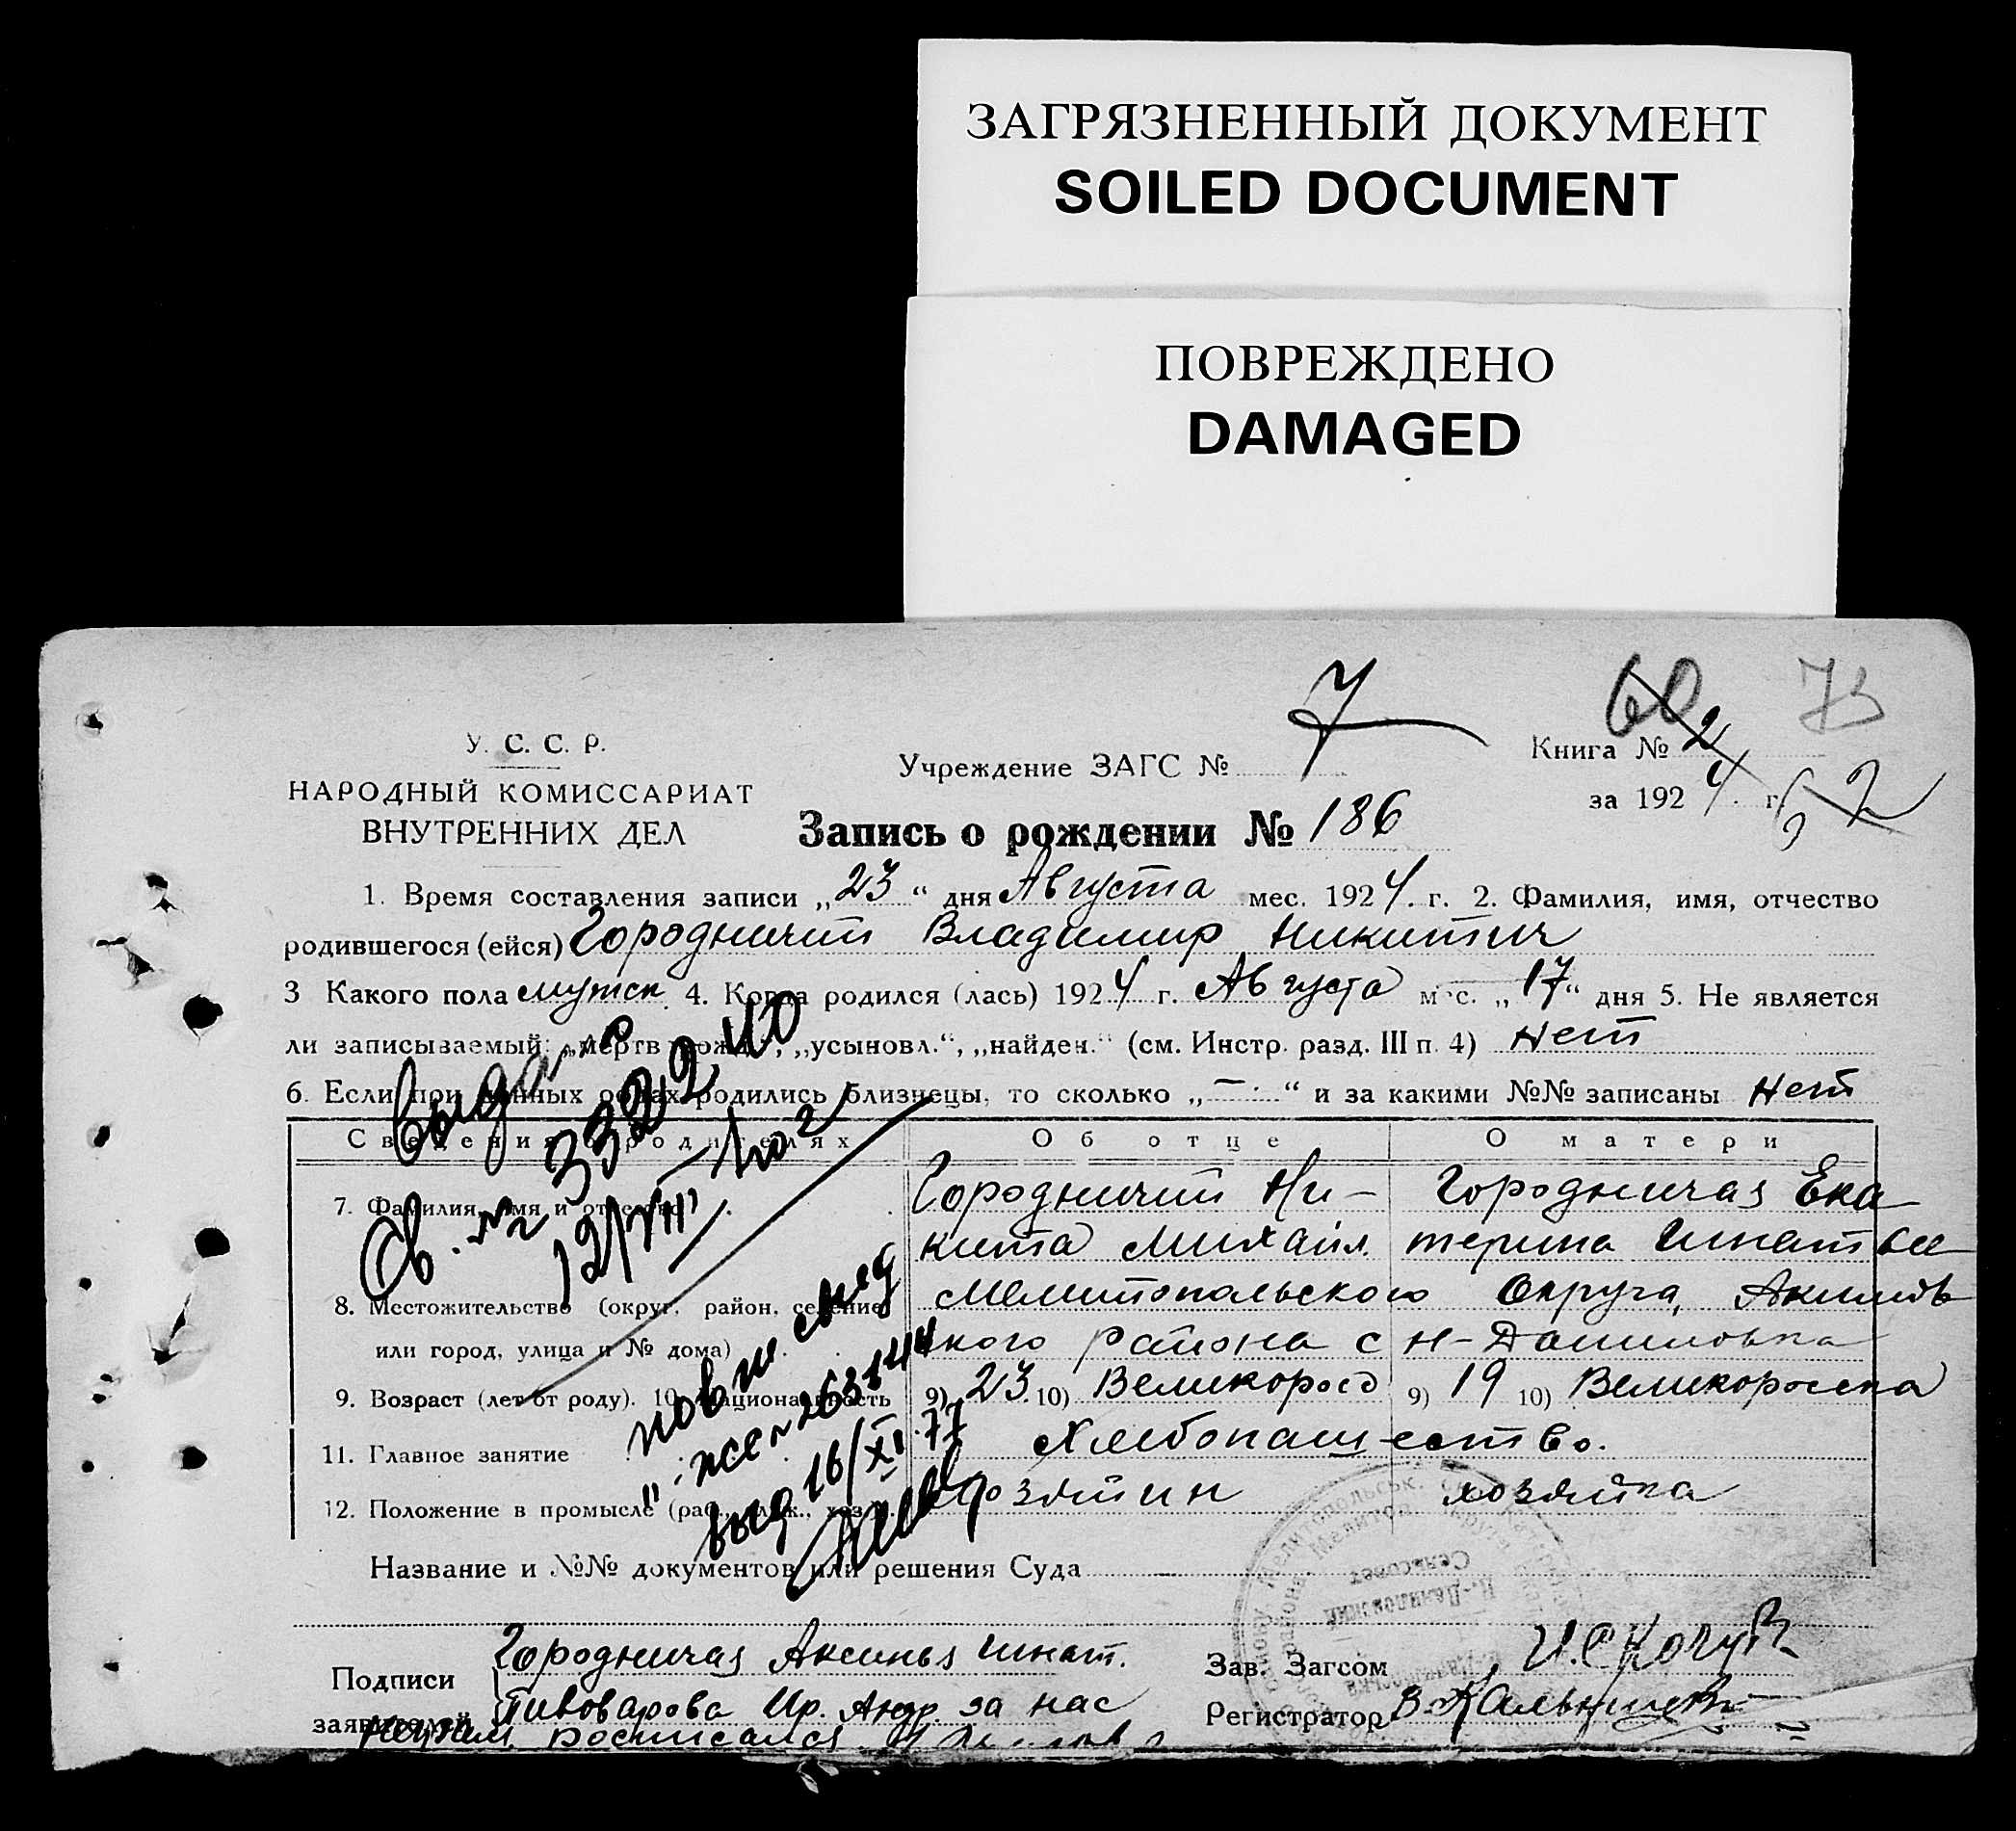 ЗАГРЯЗНЕННЫЙ ДОКУМЕНТ
SOILED DOCUMENT
ПОВРЕЖДЕНО
DAMAGED
60 73
У. С. С. Р.
НАРОДНЫЙ КОМИССАРИАТ
ВНУТРЕННИХ ДЕЛ
Учреждение ЗАГС № 7
Книга № 2
за 1924 г.
62
Запись о рождении № 186
1. Время составления записи „23“ дня Августа мес. 1924. г. 2. Фамилия, имя, отчество
родившегося (ейся) Городничий Владимир Никитич
3 Какого пола мужск. 4. Когда родился (лась) 1924 г. Августа мес. „17“ дня 5. Не является
ли записываемый: „мертворожд.“, „усыновл.“, „найден.“ (см. Инстр. разд. III п. 4) Нет
6. Если при данных родах родились близнецы, то сколько „—“ и за какими №№ записаны Нет
Сведения о родителях Об отце О матери
7. Фамилия, имя и отчество Городничий Ни-
кита Михайл. Городничая Ека
терина Игнатьев
8. Местожительство (округ, район, селение
или город, улица и № дома) Мелитопольского Округа, Акимов
кого района с Н-Даниловка
9. Возраст (лет от роду). 10. Национальность 9) 23 10) Великоросс 9) 19 10) Великоросска
11. Главное занятие Хлебопашество.
12. Положение в промысле (раб., служ., хоз.) хозяин хозяйка
Название и №№ документов или решения Суда
Выдано
Св. № 332240
12/VIII 40 г
повт свид
выд 16/XI.77
Подписи
заявителей
Городничая Аксинья Игнат.
Пивоварова Ир. Андр. за нас
неграм. росписался
Зав. Загсом
Регистратор
Н.-Даниловский
Сельсовет